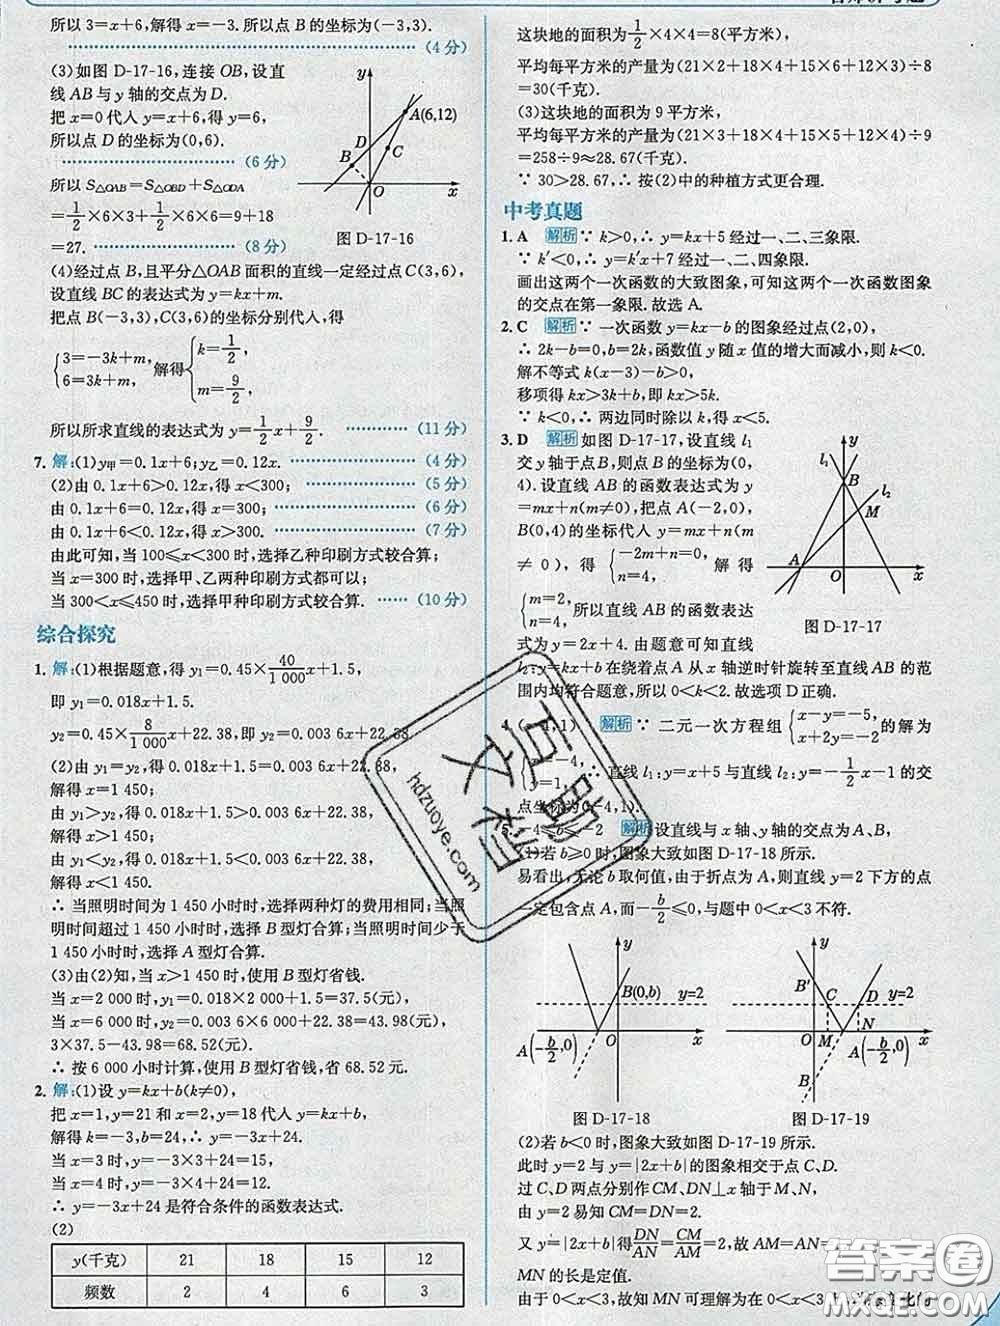 所以3=x+6,解得x=-3.所以点B的坐标为(-3,3).
(4分)
(3)如图D-17-16,连接OB,设直
线AB与y轴的交点为D.
把x=0代入y=x+6,得y=6,
所以点D的坐标为(0,6).
(6分)
所以S△OAB=S△OBD+S△ODA
=1/2×6×3+1/2×6×6=9+18
=27. (8分)
y
A(6,12)
D
B
C
O
x
图D-17-16
(4)经过点B,且平分△OAB面积的直线一定经过点C(3,6),
设直线BC的表达式为y=kx+m.
把点B(-3,3),C(3,6)的坐标分别代入,得
{3=-3k+m, 6=3k+m, 解得{k=1/2, m=9/2,
所以所求直线的表达式为y=1/2x+9/2. (11分)
7. 解:(1)y甲=0.1x+6;y乙=0.12x. (4分)
(2)由0.1x+6>0.12x,得x<300; (5分)
由0.1x+6=0.12x,得x=300; (6分)
由0.1x+6<0.12x,得x>300. (7分)
由此可知,当100≤x<300时,选择乙种印刷方式较合算;
当x=300时,选择甲、乙两种印刷方式都可以;
当300<x≤450时,选择甲种印刷方式较合算. (10分)
综合探究
1. 解:(1)根据题意,得y₁=0.45×40/1 000x+1.5,
即y₁=0.018x+1.5.
y₂=0.45×8/1 000x+22.38,即y₂=0.003 6x+22.38.
(2)由y₁=y₂,得0.018x+1.5=0.003 6x+22.38,
解得x=1 450;
由y₁>y₂,得0.018x+1.5>0.003 6x+22.38,
解得x>1 450;
由y₁<y₂,得0.018x+1.5<0.003 6x+22.38,
解得x<1 450.
∴当照明时间为1 450小时时,选择两种灯的费用相同;当照
明时间超过1 450小时时,选择B型灯合算;当照明时间少于
1 450小时时,选择A型灯合算.
(3)由(2)知,当x>1 450时,使用B型灯省钱.
当x=2 000时,y₁=0.018×2 000+1.5=37.5(元),
当x=6 000时,y₂=0.003 6×6 000+22.38=43.98(元),
3×37.5-43.98=68.52(元).
∴按6 000小时计算,使用B型灯省钱,省68.52元.
2. 解:(1)设y=kx+b(k≠0),
把x=1,y=21和x=2,y=18代入y=kx+b,
解得k=-3,b=24,∴y=-3x+24.
当x=3时,y=-3×3+24=15,
当x=4时,y=-3×4+24=12.
∴y=-3x+24是符合条件的函数表达式.
(2)
y(千克) 21 18 15 12
频数 2 4 6 3
这块地的面积为1/2×4×4=8(平方米),
平均每平方米的产量为(21×2+18×4+15×6+12×3)÷8
=30(千克).
(3)这块地的面积为9平方米,
平均每平方米的产量为(21×3+18×4+15×5+12×4)÷9
=258÷9≈28.67(千克).
∵30>28.67,∴按(2)中的种植方式更合理.
中考真题
1. A 解析 ∵k>0,∴y=kx+5经过一、二、三象限.
∵k′<0,∴y=k′x+7经过一、二、四象限.
画出这两个一次函数的大致图象,可知这两个一次函数图象
的交点在第一象限.故选A.
2. C 解析 ∵一次函数y=kx-b的图象经过点(2,0),
∴2k-b=0,b=2k,函数值y随x值的增大而减小,则k<0.
解不等式k(x-3)-b>0,
移项得kx>3k+b,即kx>5k.
∵k<0,∴两边同时除以k,得x<5.
3. D 解析 如图D-17-17,设直线l₁
交y轴于点B,则点B的坐标为(0,
4).设直线AB的函数表达式为y
=mx+n(m≠0),把点A(-2,0),
B(0,4)的坐标代入y=mx+n(m
≠0),得{-2m+n=0, n=4, 解得
{m=2, n=4, 所以直线AB的函数表达
式为y=2x+4.由题意可知直线
l₂:y=kx+b在绕着点A从x轴逆时针旋转至直线AB的范
围内均符合题意,所以0<k<2.故选项D正确.
y
l₁
B
l₂
M
A
O
x
图D-17-17
4. (-4,1) 解析 ∵二元一次方程组{x-y=-5, x+2y=-2的解为
{x=-4, y=1, ∴直线l₁:y=x+5与直线l₂:y=-1/2x-1的交
点坐标为(-4,1).
5. -4≤b≤-2 解析 设直线与x轴、y轴的交点为A,B,
(1)若b≥0时,图象大致如图D-17-18所示.
易看出,无论b取何值,由于折点为A,则直线y=2下方的点
一定包含点A,而-b/2≤0,与题中0<x<3不符.
y
B(0,b)
y=2
O
x
A(-b/2,0)
图D-17-18
y
B′
C
D
y=2
O
M
N
x
A(-b/2,0)
B
图D-17-19
(2)若b<0时,图象大致如图D-17-19所示.
此时y=2与y=|2x+b|的图象相交于点C、D.
过C、D两点分别作CM、DN⊥x轴于M、N,
由y=2易知CM=DN=2.
又∵y=|2x+b|得DN/AN=CM/AM=2,故AM=AN=
MN的长是定值.
由于0<x<3,故知MN可理解为在0<x<3
互助文档
hdzuoye.com
答案圈